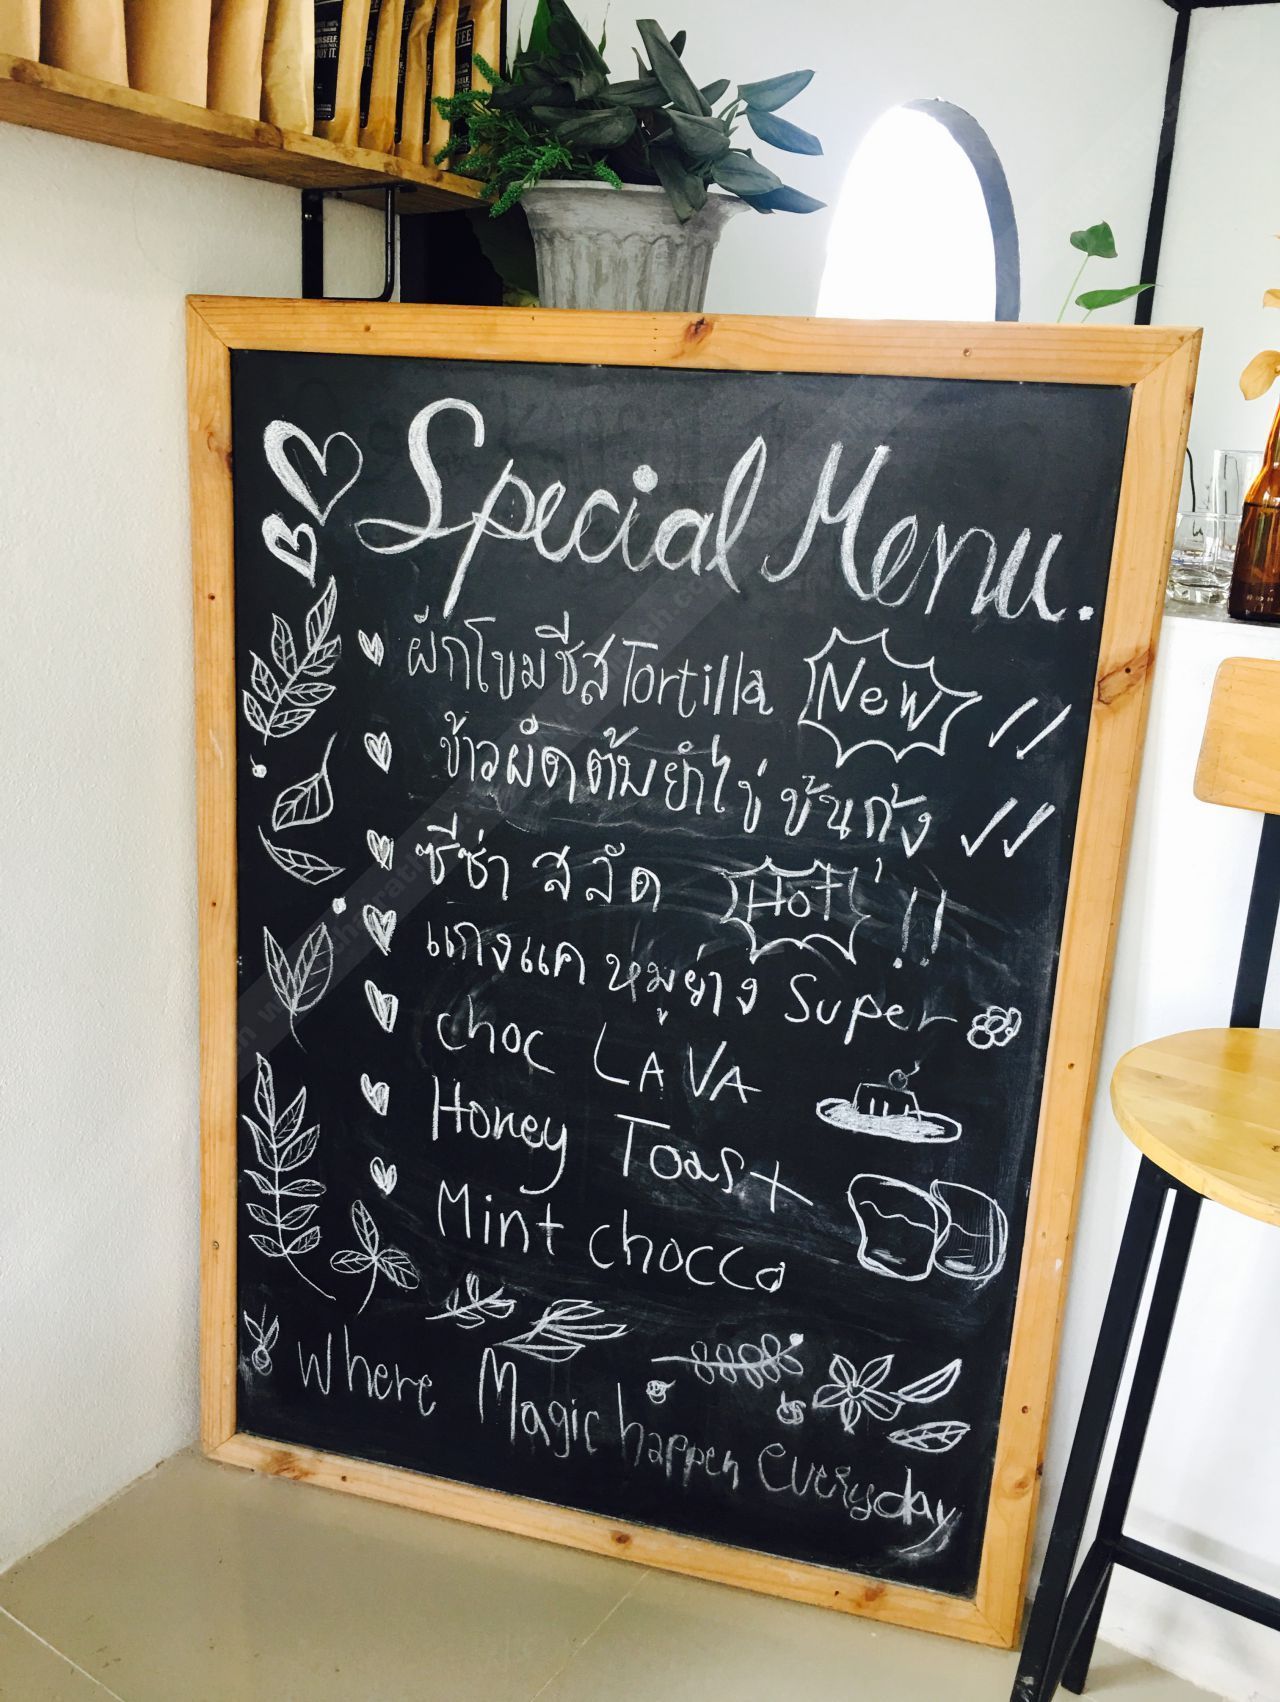 Special Menu.
ผักโขมชีส Tortilla New !!
ข้าวผัดต้มยำไข่ ข้นกุ้ง !!
ซีซ่า สลัด Hot !!
แกงแค หมูย่าง Super
choc LAVA
Honey Toast
Mint chocca
Where Magic happen everyday